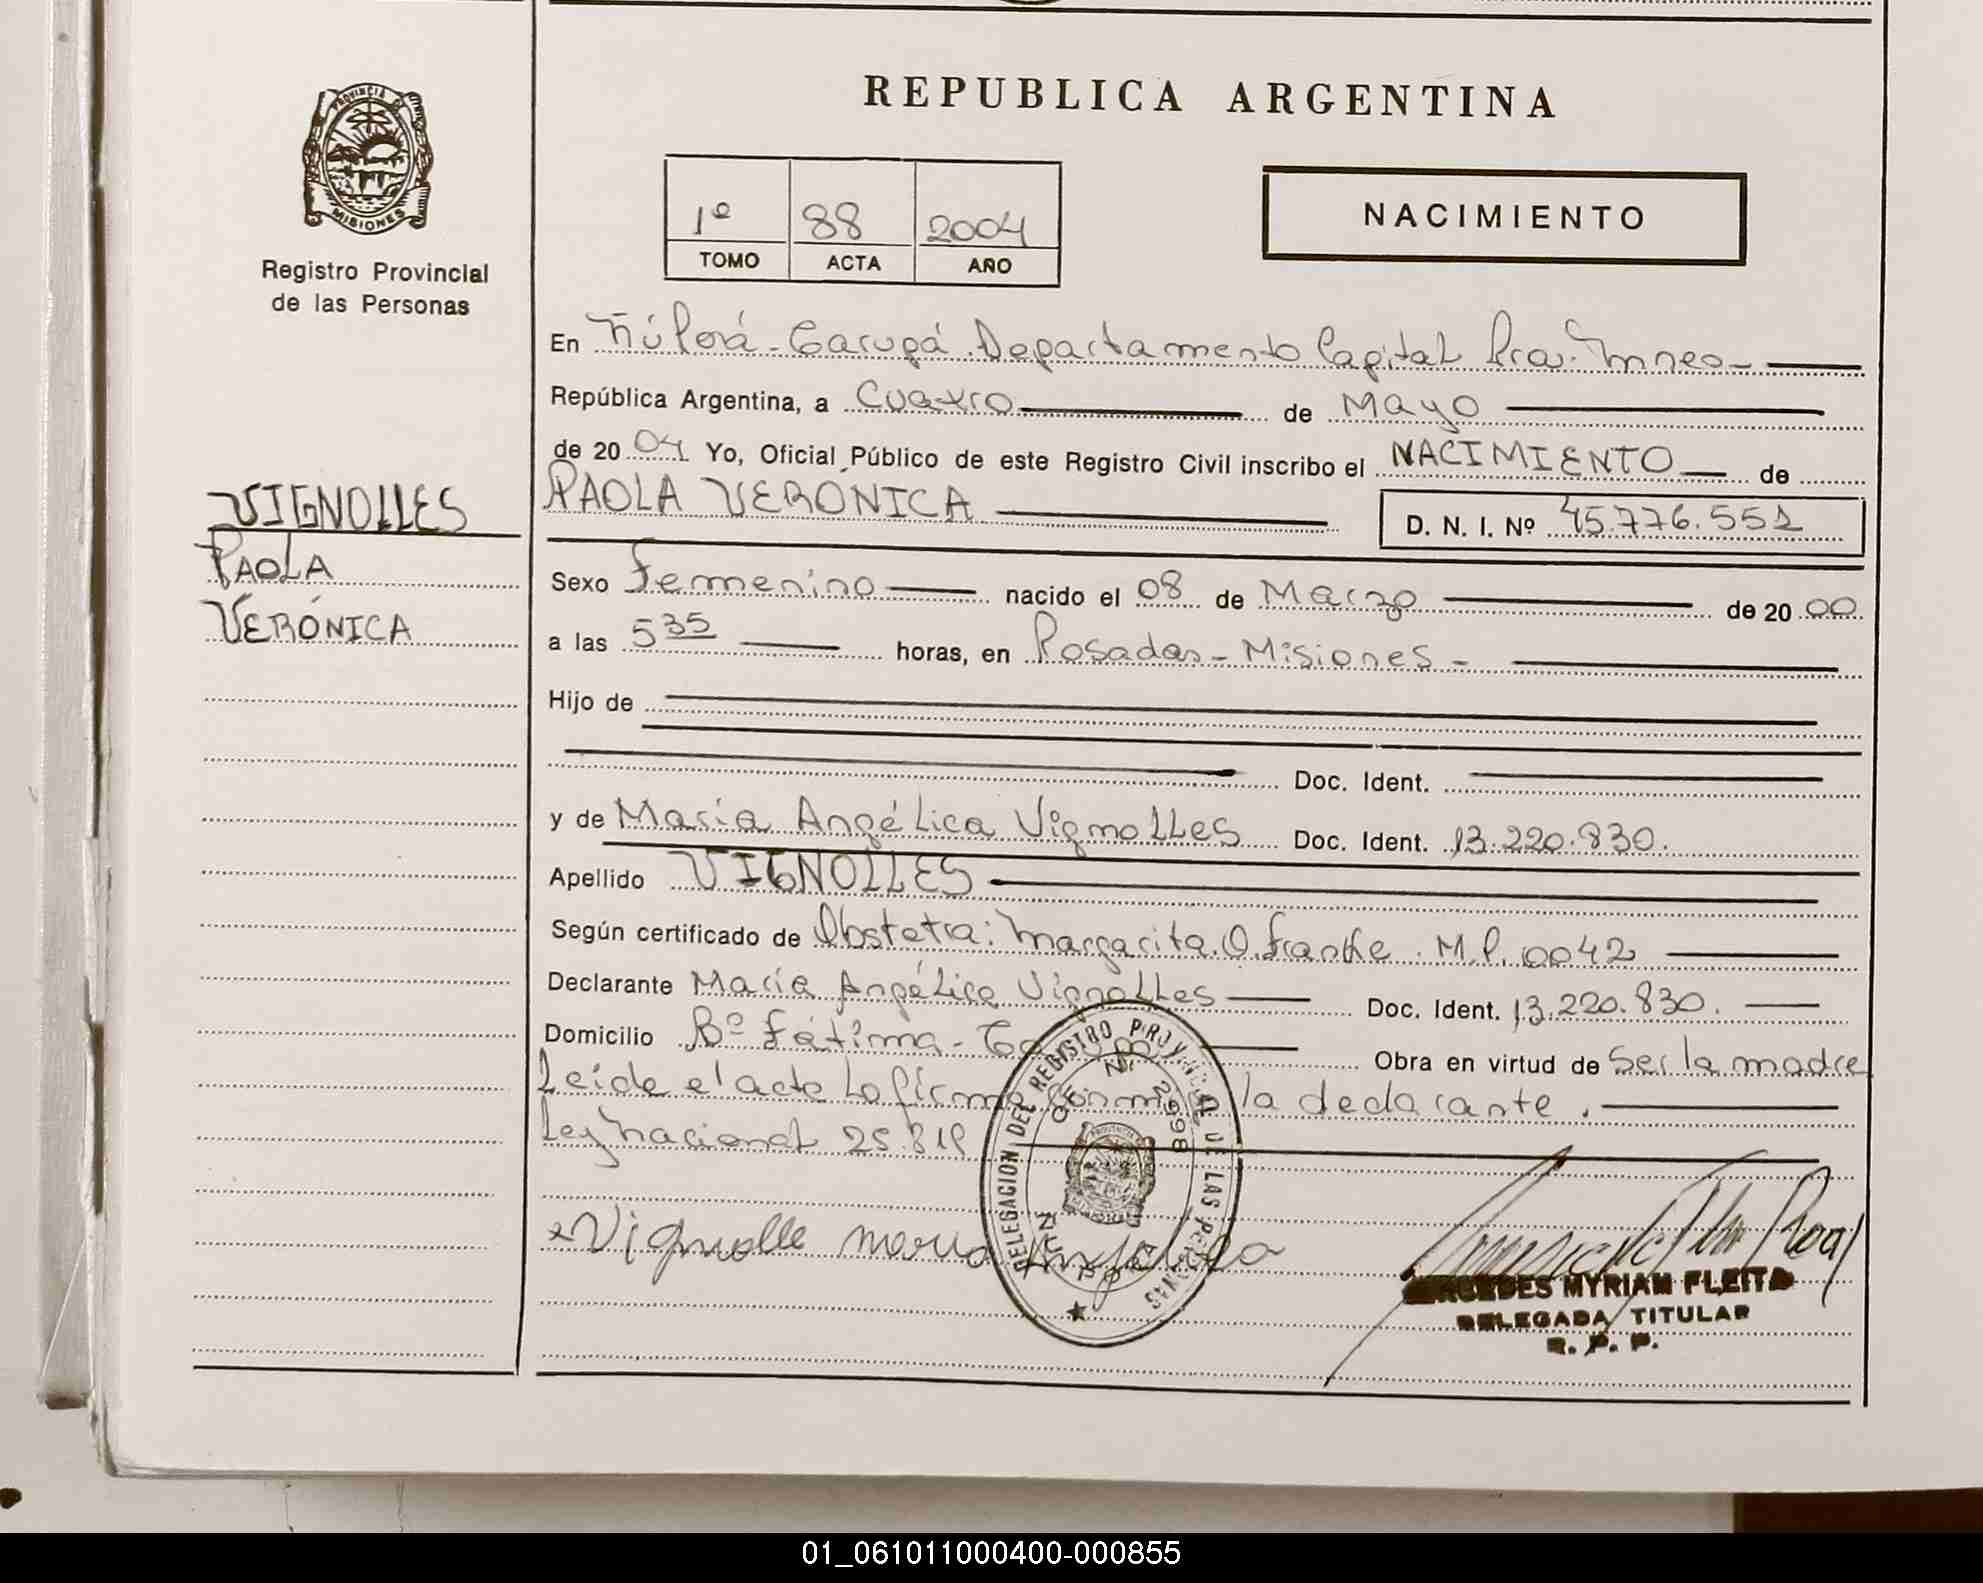 REPUBLICA ARGENTINA
PROVINCIA DE
MISIONES
Registro Provincial
de las Personas
1º 88 2004
TOMO ACTA AÑO
NACIMIENTO
En Ñú Porá - Garupá. Departamento Capital Pcia. Mnes -
República Argentina, a Cuatro de Mayo
de 20 04 Yo, Oficial Público de este Registro Civil inscribo el NACIMIENTO de
PAOLA VERONICA D. N. I. Nº 45.776.551
VIGNOLLES
PAOLA
VERÓNICA
Sexo Femenino nacido el 08 de Marzo de 20 00
a las 5 35 horas, en Posadas - Misiones -
Hijo de
Doc. Ident.
y de María Angélica Vignolles Doc. Ident. 13.220.830.
Apellido VIGNOLLES
Según certificado de Obstetra: Margarita. O. Franke. M.P. 0042
Declarante María Angélica Vignolles Doc. Ident. 13.220.830.
Domicilio Bº Fátima - Obra en virtud de Ser la madre
Leida el acta la firma conmigo la declarante.
Ley nacional 25.819
DELEGACION DEL REGISTRO PROVINCIAL DE LAS PERSONAS
ÑU PORA
Vignolle maria Angelica
MERCEDES MYRIAM FLEITA
DELEGADA TITULAR
R. P. P.
01_061011000400-000855